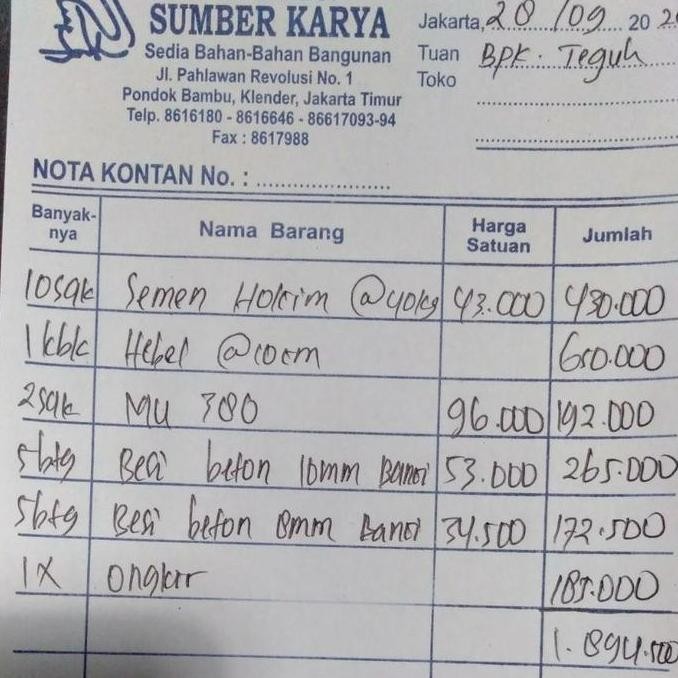 SUMBER KARYA
Sedia Bahan-Bahan Bangunan
Jl. Pahlawan Revolusi No. 1
Pondok Bambu, Klender, Jakarta Timur
Telp. 8616180 - 8616646 - 86617093-94
Fax : 8617988
Jakarta, 20/09 20 20
Tuan BPK. Teguh
Toko
NOTA KONTAN No. :
Banyak-nya Nama Barang Harga Satuan Jumlah
10 sak Semen Holcim @40kg 43.000 430.000
1 kbk Hebel @10cm 650.000
2 sak MU 380 96.000 192.000
5 btg Besi beton 10mm Banci 53.000 265.000
5 btg Besi beton 8mm Banci 34.500 172.500
1X ongkir 185.000
1.894.500